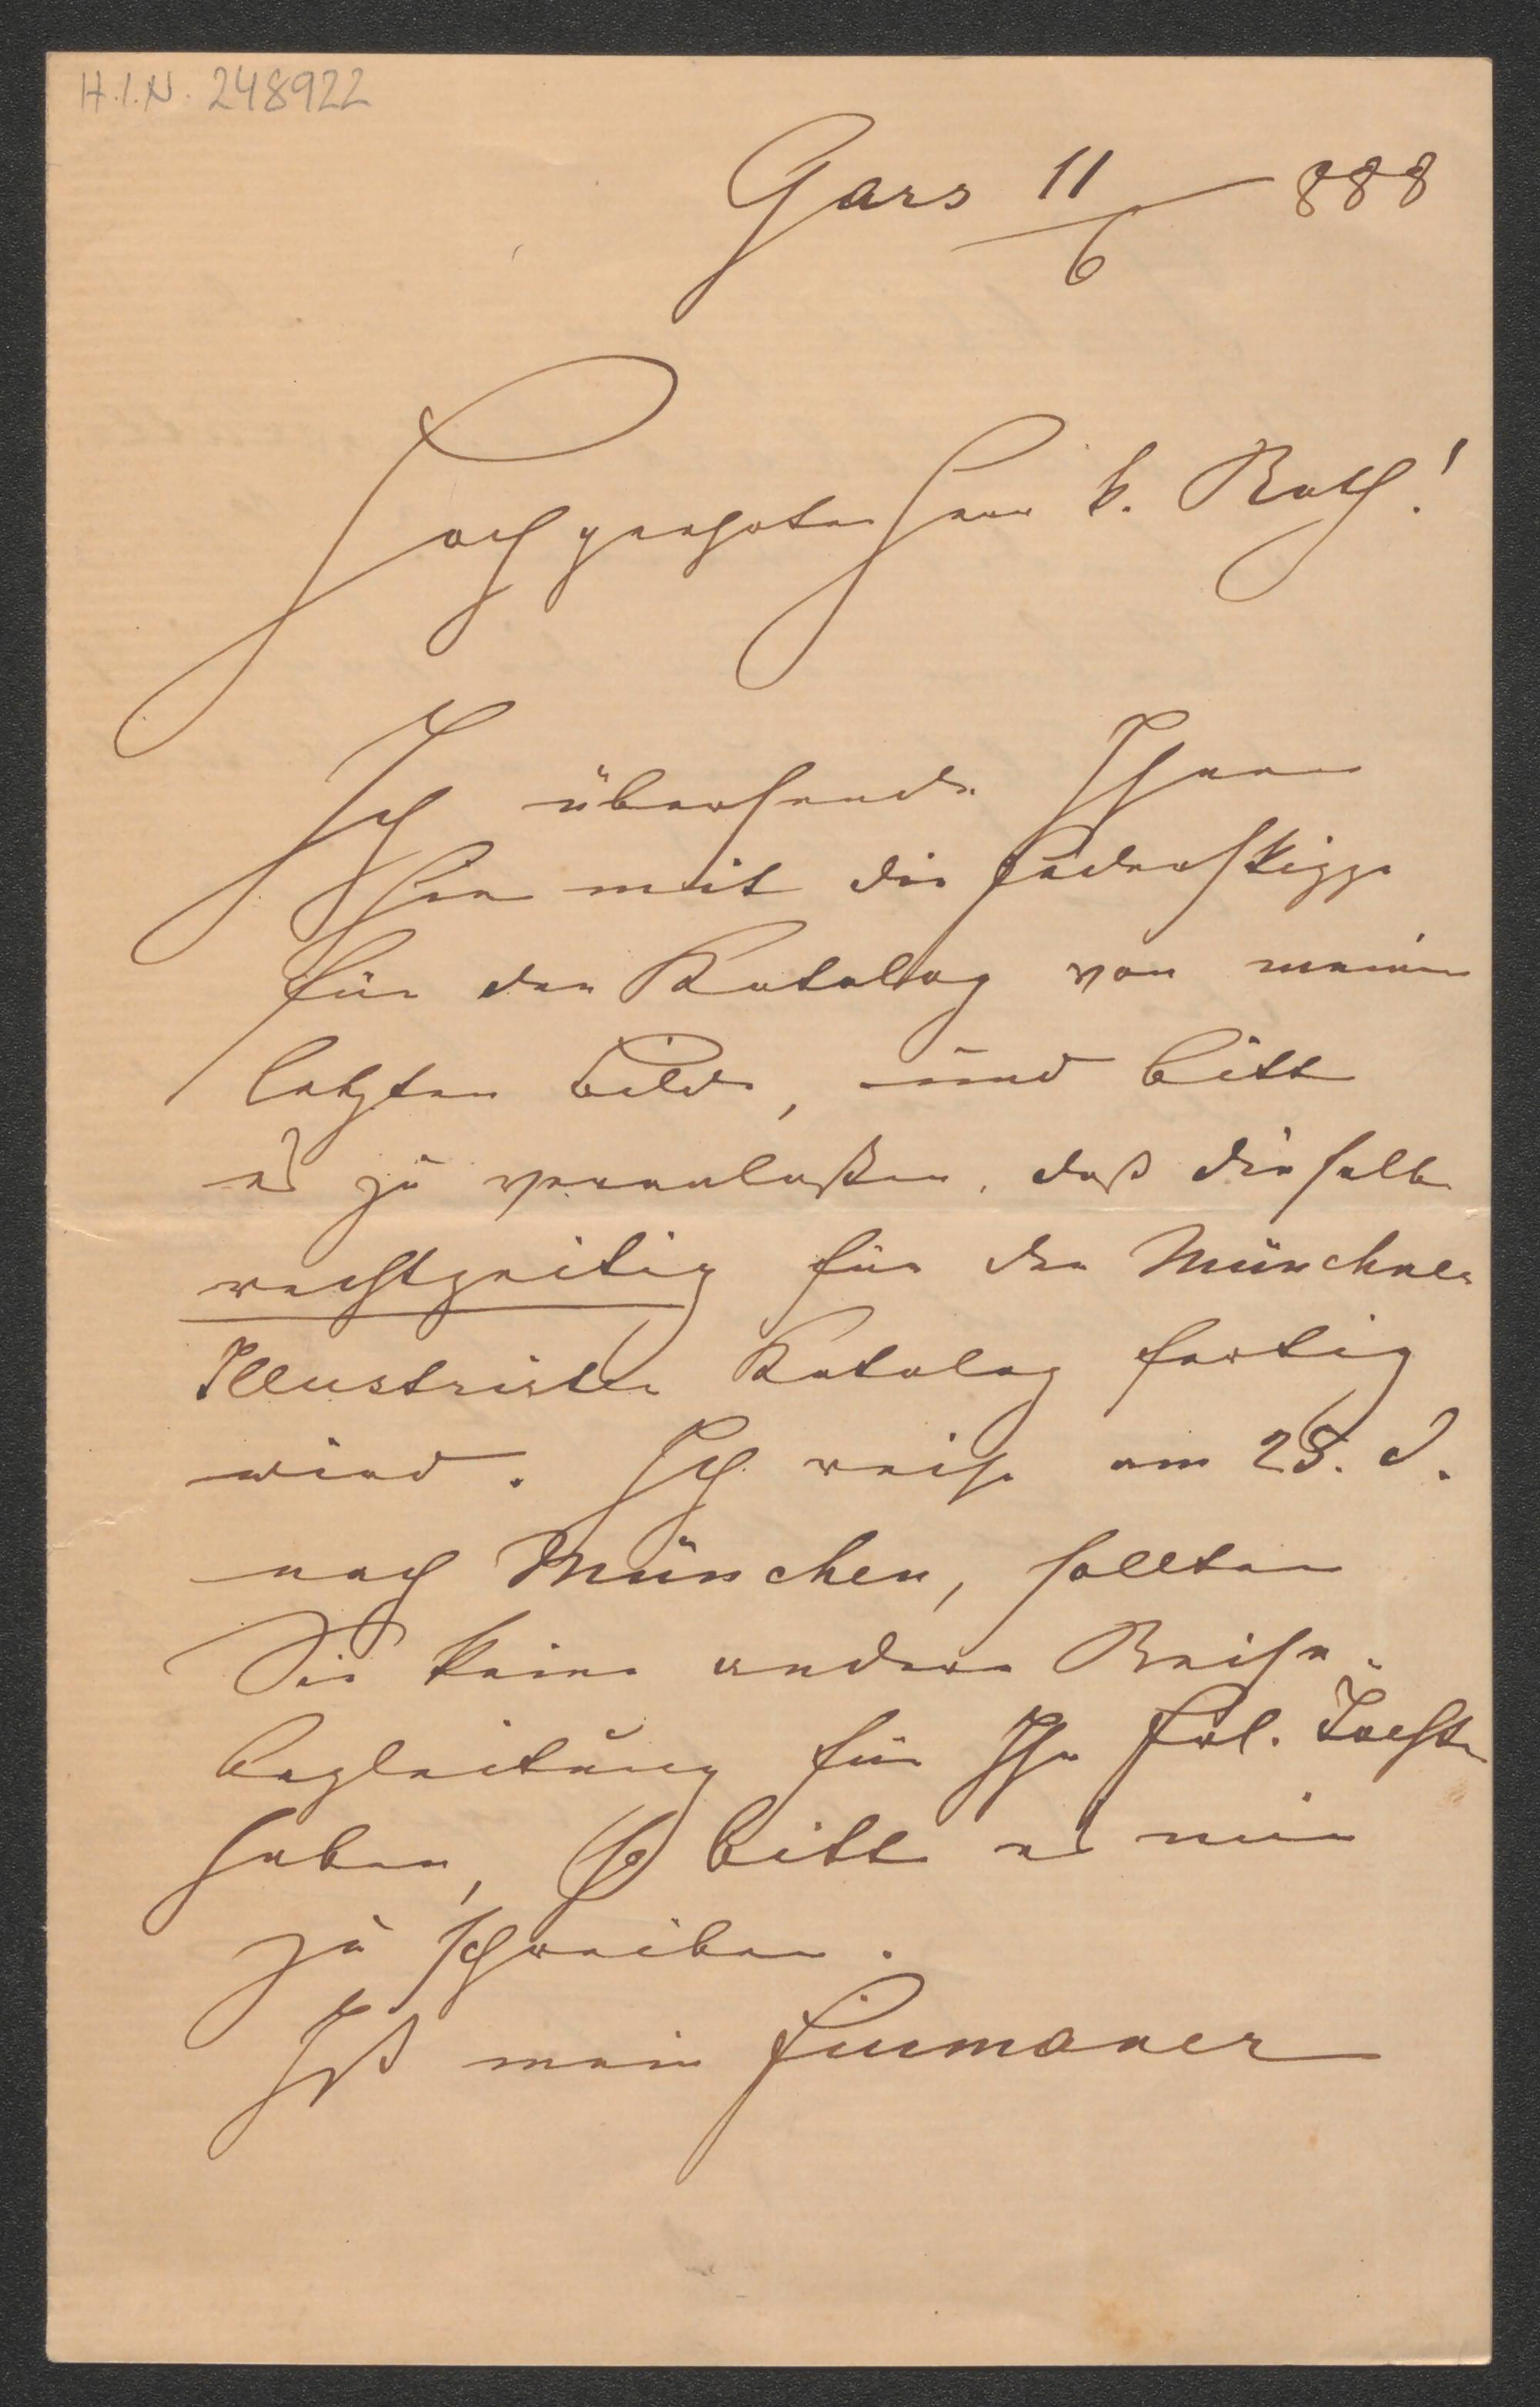 H.I.N. 248922
Gars 11/6 888
Hochgeehrter Herr k. Rath!
Ich übersende Ihnen
hier mit die Federskizze
für den Katalog von meinem
letzten Bilde, und bitte
es zu veranlaßen, daß dieselbe
rechtzeitig für den Münchner
Illustrirten Katalog fertig
wird. Ich reise am 28. d.
nach München, sollten
Sie keine andere Reise-
begleitung für Ihr Frl. Tochter
haben, so bitte es mir
zu schreiben.
Ist mein